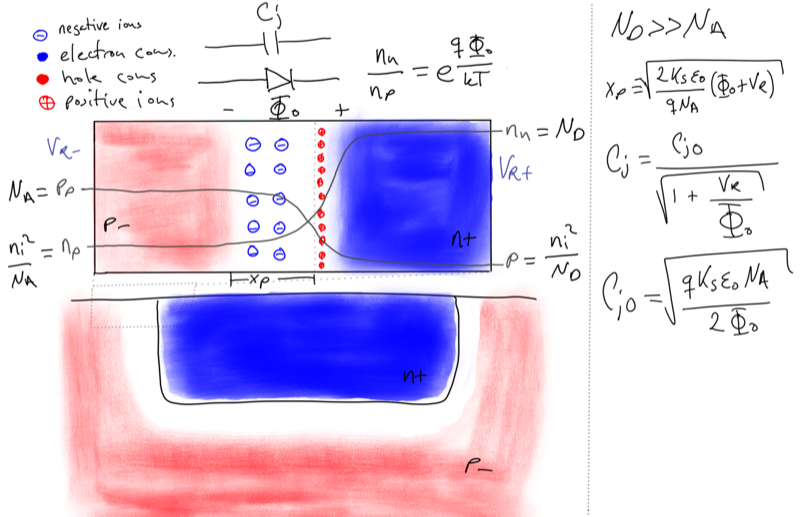 Cj
negative ions
electron conc.
hole conc
positive ions
n_n / n_p = e^(qΦ₀ / kT)
- Φ₀ +
V_R-
V_R+
n_n = N_D
N_A = P_p
n_i² / N_A = n_p
P-
n+
P = n_i² / N_D
x_p
n+
P-
N_D >> N_A
x_p = √(2K_Sε₀ / qN_A (Φ₀ + V_R))
C_j = C_j0 / √(1 + V_R / Φ₀)
C_j0 = √(qK_Sε₀N_A / 2Φ₀)